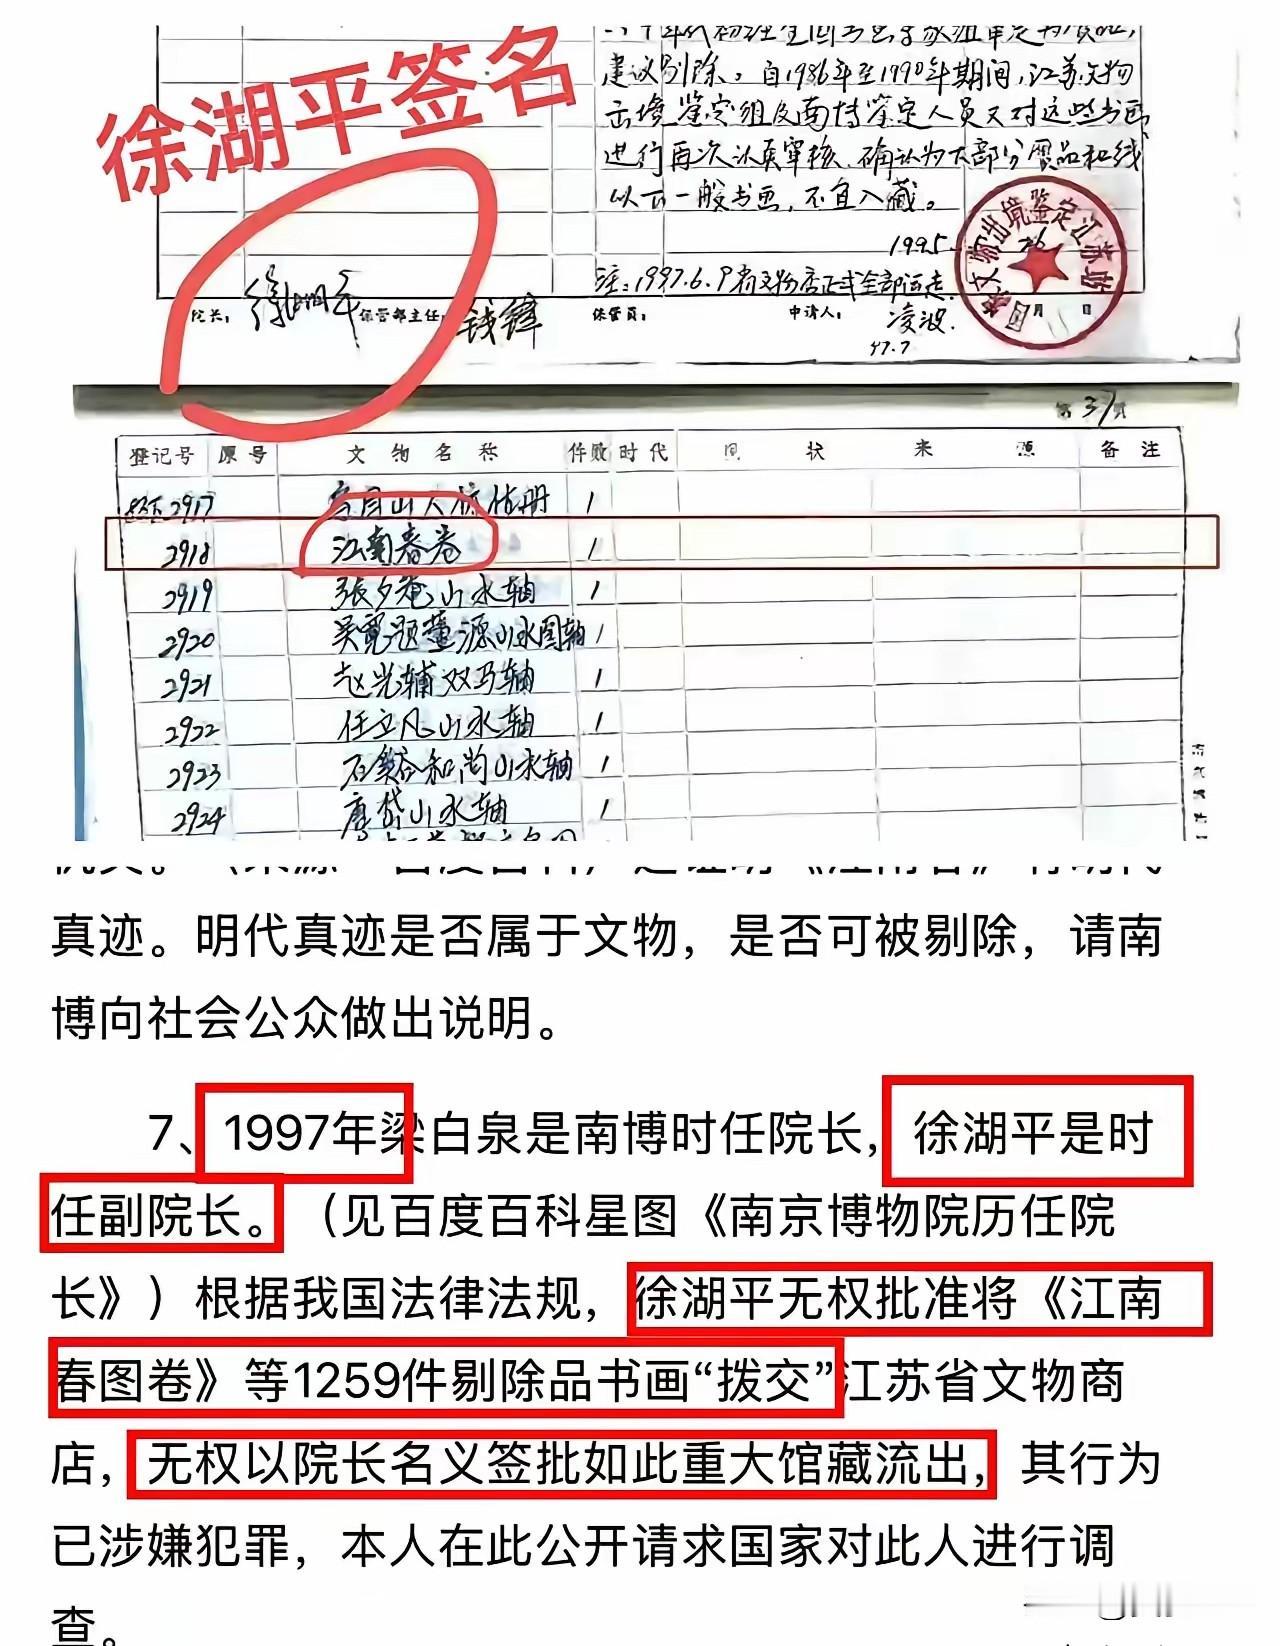 徐湖平签名
建议剔除。自1986年至1990年期间，江苏文物
出境鉴定组及南博鉴定人员又对这些书画
进行再次认真审核、确认为大部分赝品和线
以下一般书画，不宜入藏。
1995.
注：1997.6.9有文物店正式全部运走.
院长：徐湖平 保管部主任：钱锋 保管员： 申请人：凌波.
97.7
月 日
第31页
登记号 原号 文物名称 件数 时代 现状 来源 备注
2917 1
2918 江南春卷 1
2919 张夕庵山水轴 1
2920 吴宽题董源山水图轴 1
2921 赵光辅双马轴 1
2922 任立凡山水轴 1
2923 石溪和尚山水轴 1
2924 唐岱山水轴 1
真迹。明代真迹是否属于文物，是否可被剔除，请南
博向社会公众做出说明。
7、1997年梁白泉是南博时任院长，徐湖平是时
任副院长。（见百度百科星图《南京博物院历任院
长》）根据我国法律法规，徐湖平无权批准将《江南
春图卷》等1259件剔除品书画“拨交”江苏省文物商
店，无权以院长名义签批如此重大馆藏流出，其行为
已涉嫌犯罪，本人在此公开请求国家对此人进行调
查。